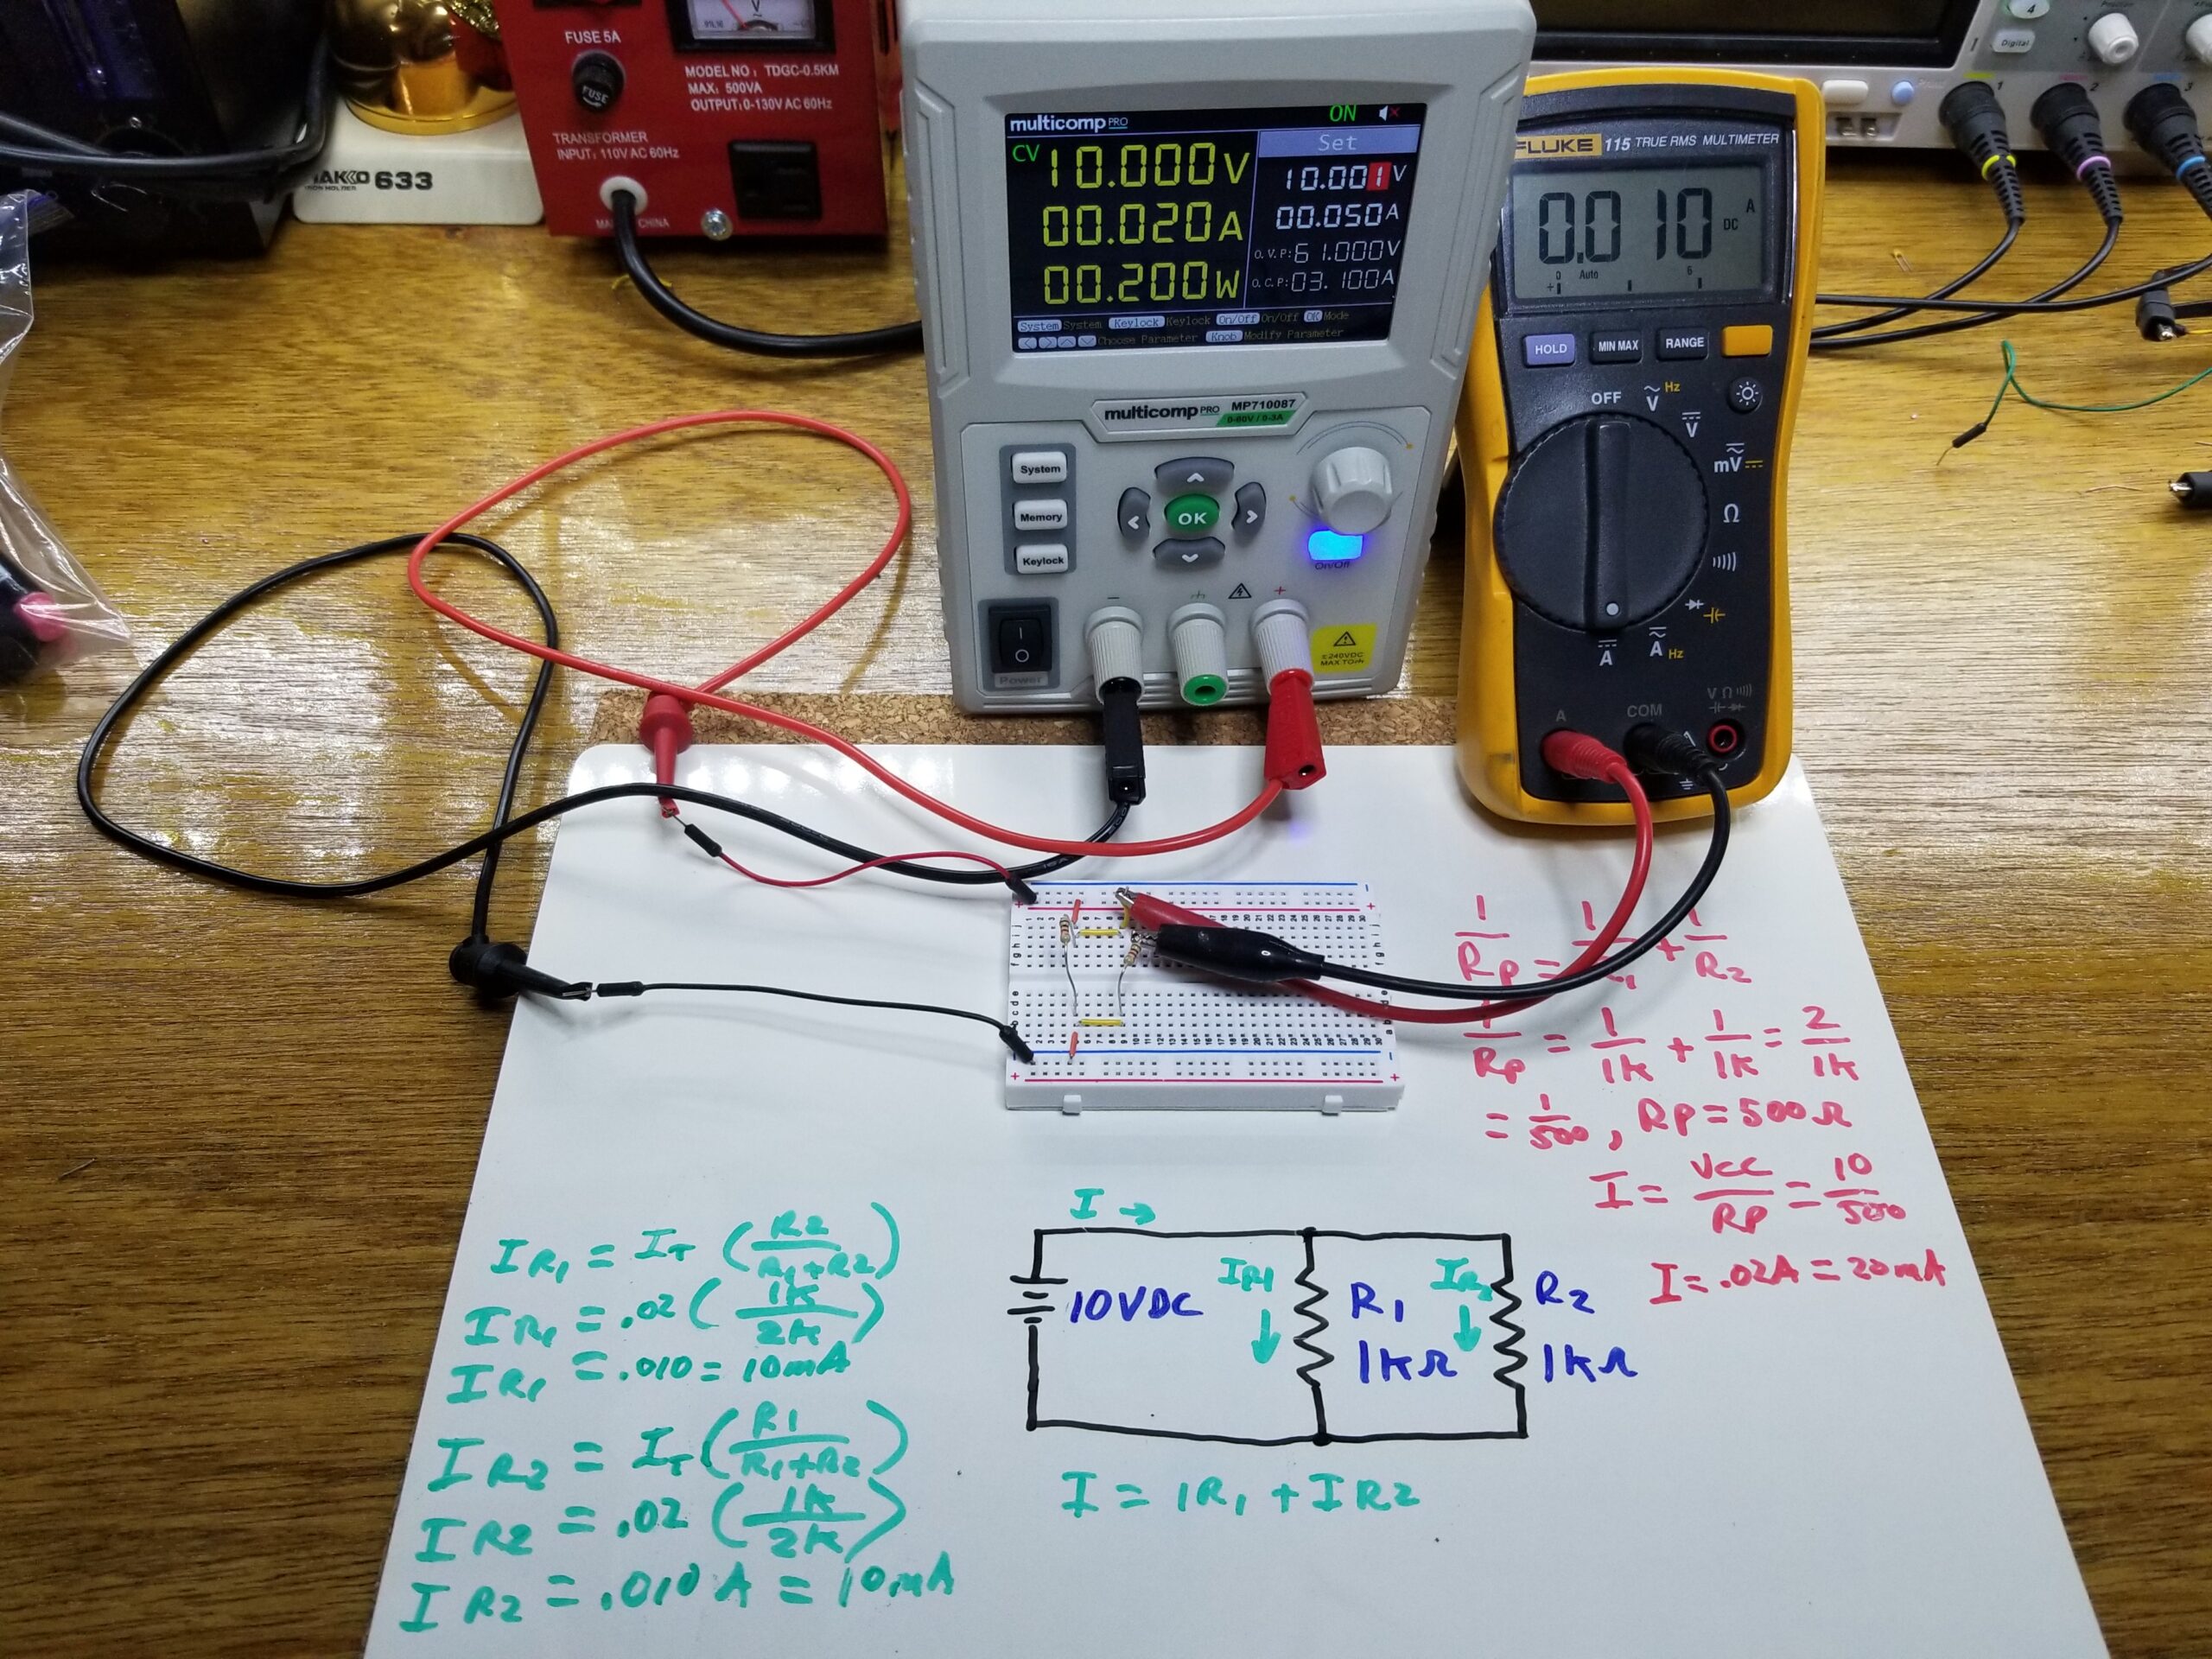 FUSE 5A
FUSE
MODEL NO : TDGC-0.5KM
MAX: 500VA
OUTPUT:0-130V AC 60Hz
TRANSFORMER
INPUT: 110V AC 60Hz
CHINA
633
multicomp PRO
ON
CV
10.000V
00.020A
00.200W
Set
10.001V
00.050A
O.V.P:61.000V
O.C.P:03.100A
System System Keylock Keylock On/Off On/Off OK Mode
Choose Parameter Knob Modify Parameter
multicomp PRO MP710087
0-60V / 0-3A
System
Memory
Keylock
OK
On/Off
Power
FLUKE 115 TRUE RMS MULTIMETER
0.010
A
DC
0 Auto 6
HOLD
MIN MAX
RANGE
OFF
V Hz
V
mV
Ω
A
A Hz
A
COM
V Ω
4
Digital
1
2
3
1/RP = 1/R1 + 1/R2
1/RP = 1/1k + 1/1k = 2/1k
= 1/500, RP = 500Ω
I = VCC/RP = 10/500
I = .02A = 20mA
IR1 = IT (R2/R1+R2)
IR1 = .02 (1k/2k)
IR1 = .010 = 10mA
IR2 = IT (R1/R1+R2)
IR2 = .02 (1k/2k)
IR2 = .010A = 10mA
I →
10VDC
IR1
R1
1kΩ
IR2
R2
1kΩ
I = IR1 + IR2